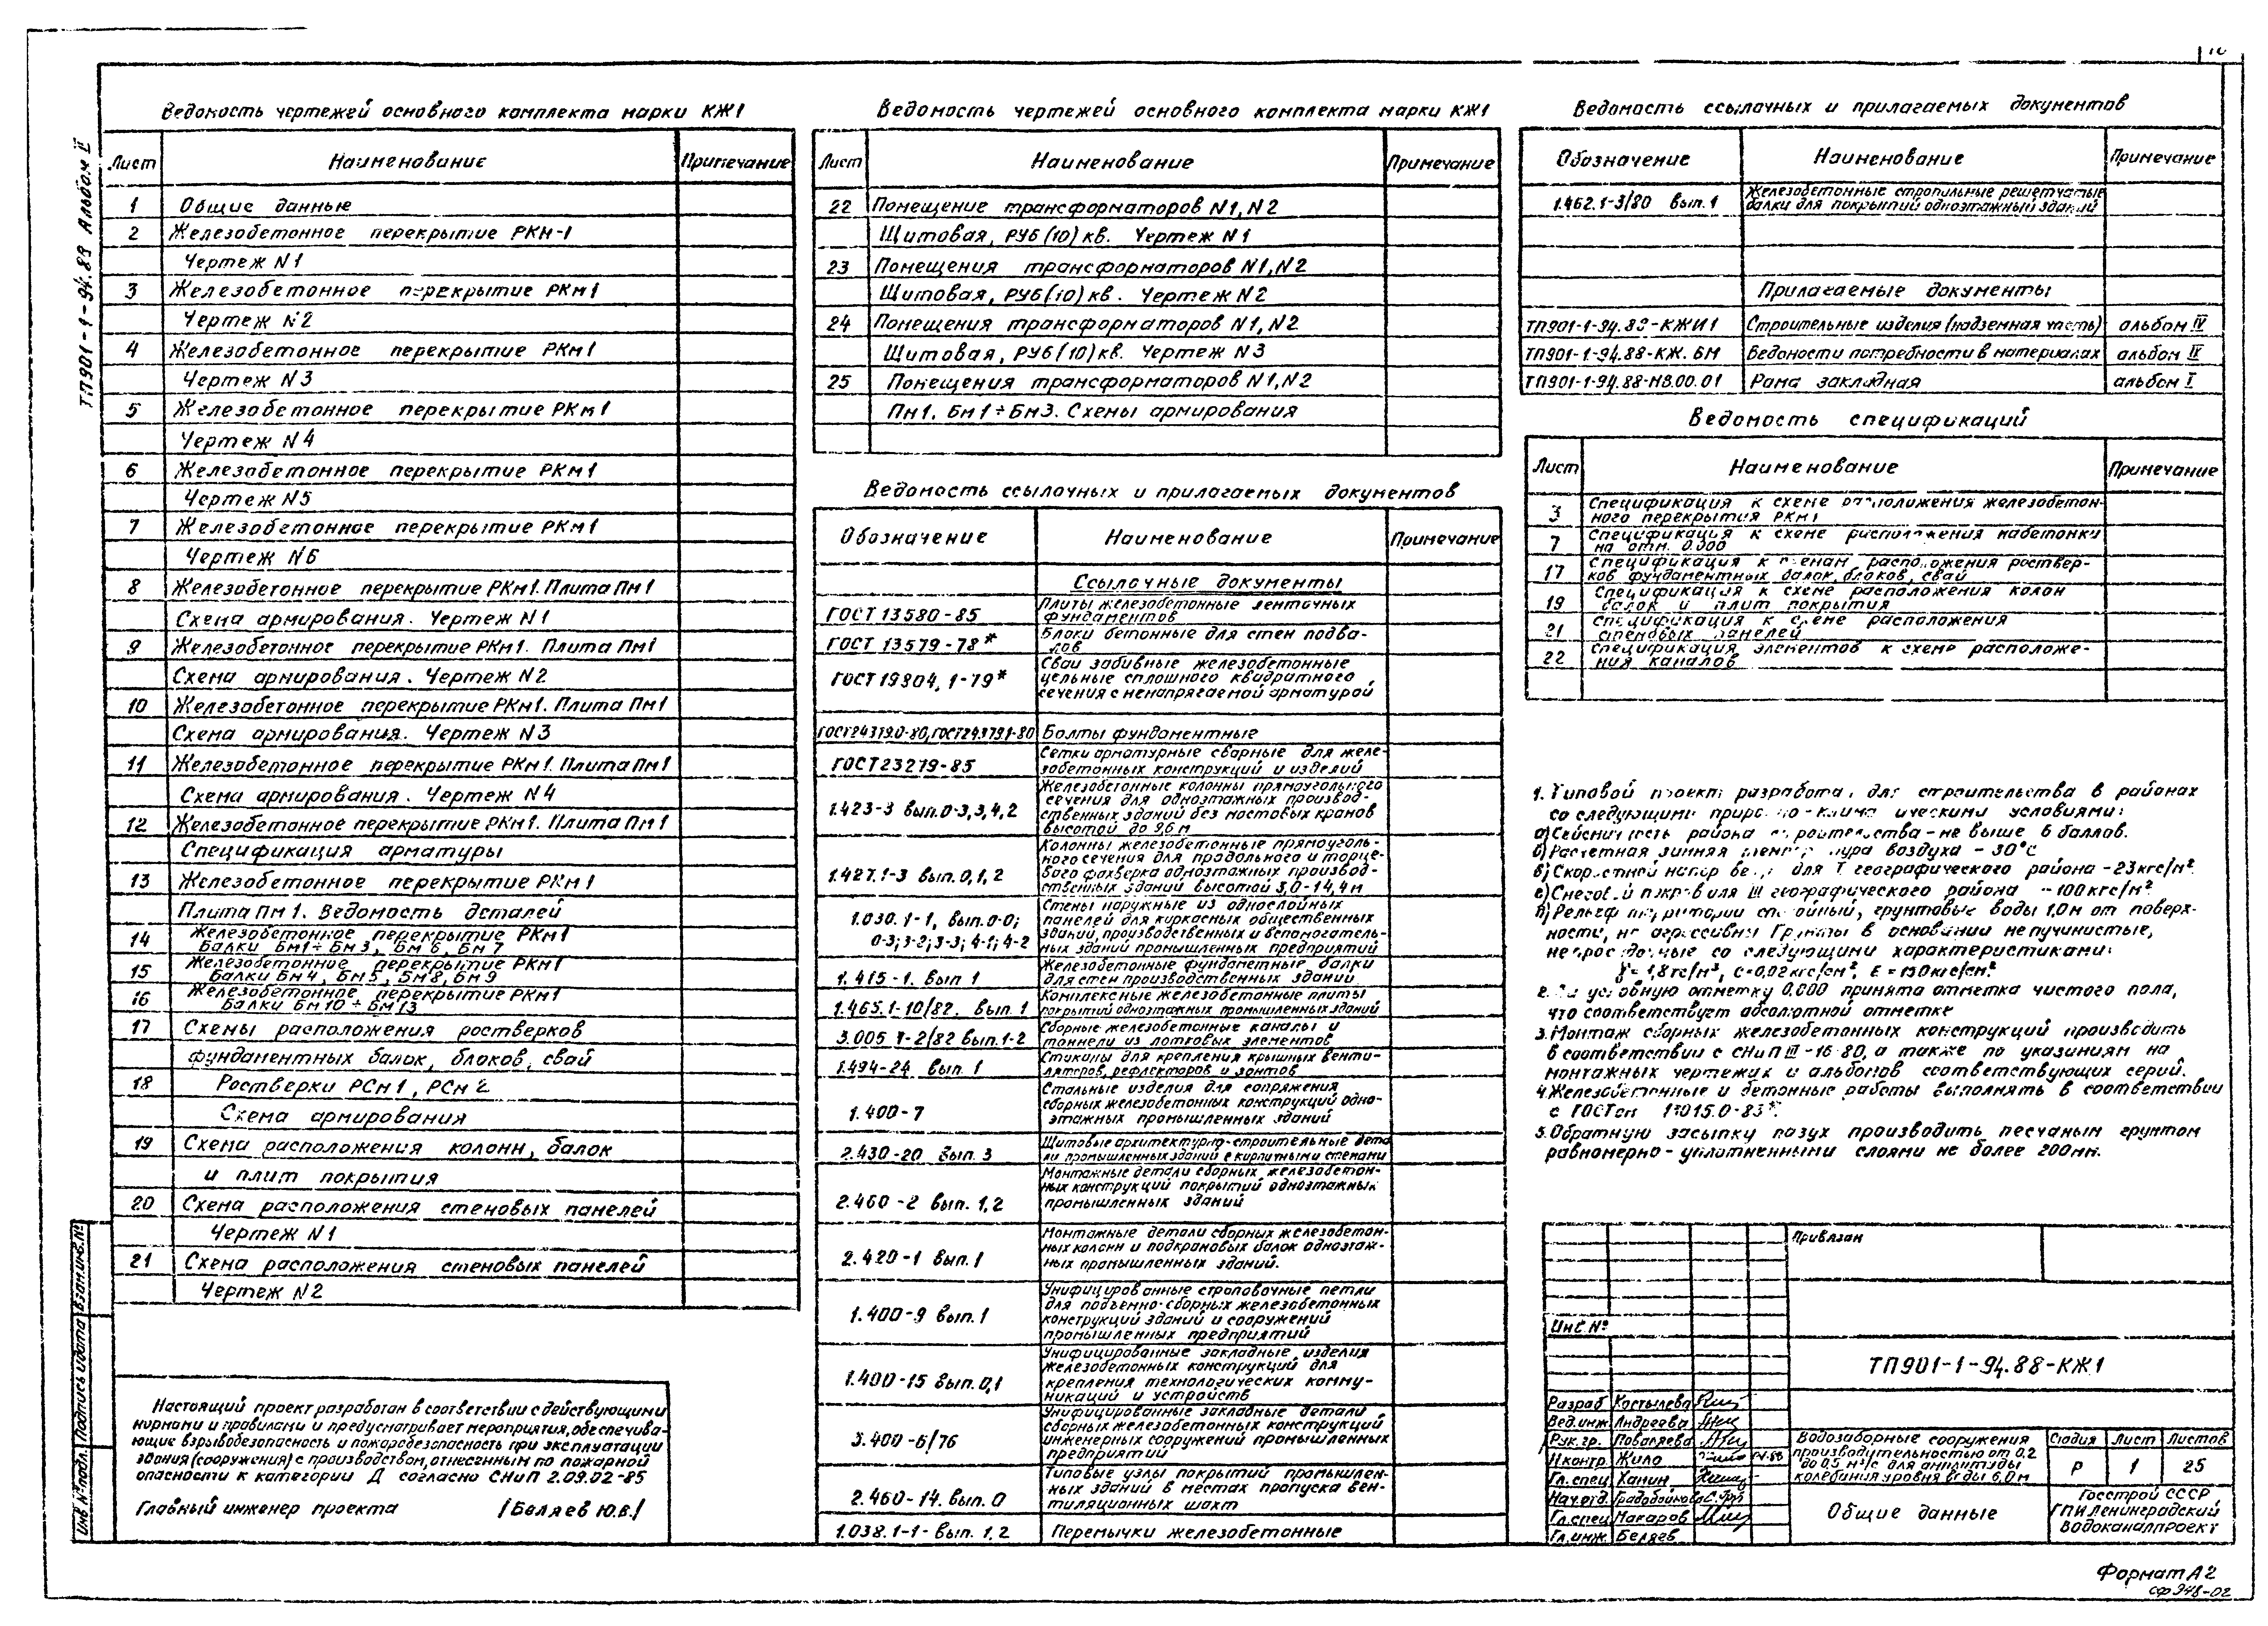 ТП901-1-94.88 Альбом II
Ведомость чертежей основного комплекта марки КЖ1
Лист Наименование Примечание
1 Общие данные
2 Железобетонное перекрытие РКМ-1
Чертеж N1
3 Железобетонное перекрытие РКм1
Чертеж N2
4 Железобетонное перекрытие РКм1
Чертеж N3
5 Железобетонное перекрытие РКм1
Чертеж N4
6 Железобетонное перекрытие РКм1
Чертеж N5
7 Железобетонное перекрытие РКм1
Чертеж N6
8 Железобетонное перекрытие РКм1. Плита Пм1
Схема армирования. Чертеж N1
9 Железобетонное перекрытие РКм1. Плита Пм1
Схема армирования. Чертеж N2
10 Железобетонное перекрытие РКм1. Плита Пм1
Схема армирования. Чертеж N3
11 Железобетонное перекрытие РКм1. Плита Пм1
Схема армирования. Чертеж N4
12 Железобетонное перекрытие РКм1. Плита Пм1
Спецификация арматуры
13 Железобетонное перекрытие РКм1
Плита Пм1. Ведомость деталей
14 Железобетонное перекрытие РКм1
Балки Бм1÷Бм3, Бм6, Бм7
15 Железобетонное перекрытие РКм1
Балки Бм4, Бм5, Бм8, Бм9
16 Железобетонное перекрытие РКм1
Балки Бм10÷Бм13
17 Схемы расположения ростверков
фундаментных балок, блоков, свай
18 Ростверки РСм1, РСм2
Схема армирования
19 Схема расположения колонн, балок
и плит покрытия
20 Схема расположения стеновых панелей
Чертеж N1
21 Схема расположения стеновых панелей
Чертеж N2
Настоящий проект разработан в соответствии с действующими
нормами и правилами и предусматривает мероприятия, обеспечива-
ющие взрывобезопасность и пожаробезопасность при эксплуатации
здания (сооружения) с производством, отнесенным по пожарной
опасности к категории Д согласно СНиП 2.09.02-85
Главный инженер проекта /Беляев Ю.В./
Инв № подл. Подпись и дата Взам.инв.№
Ведомость чертежей основного комплекта марки КЖ1
Лист Наименование Примечание
22 Помещение трансформаторов N1, N2
Щитовая, РУ6(10)кв. Чертеж N1
23 Помещения трансформаторов N1, N2
Щитовая, РУ6(10)кв. Чертеж N2
24 Помещения трансформаторов N1, N2
Щитовая, РУ6(10)кв. Чертеж N3
25 Помещения трансформаторов N1, N2
Пм1. Бм1÷Бм3. Схемы армирования
Ведомость ссылочных и прилагаемых документов
Обозначение Наименование Примечание
Ссылочные документы
ГОСТ 13580-85 Плиты железобетонные ленточных
фундаментов
ГОСТ 13579-78* Блоки бетонные для стен подва-
лов
ГОСТ 19804.1-79* Сваи забивные железобетонные
цельные сплошного квадратного
сечения с ненапрягаемой арматурой
ГОСТ24379.0-80, ГОСТ24379.1-80 Болты фундаментные
ГОСТ23279-85 Сетки арматурные сварные для желе-
зобетонных конструкций и изделий
1.423-3 вып.0-3,3,4,2 Железобетонные колонны прямоугольного
сечения для одноэтажных производ-
ственных зданий без мостовых кранов
высотой до 9,6 м
1.427.1-3 вып.0,1,2 Колонны железобетонные прямоуголь-
ного сечения для продольного и торце-
вого фахверка одноэтажных производ-
ственных зданий высотой 3,0-14,4м
1.030.1-1, вып.0-0;
0-3; 3-2; 3-3; 4-1; 4-2 Стены наружные из однослойных
панелей для каркасных общественных
зданий, производственных и вспомогатель-
ных зданий промышленных предприятий
1.415-1. вып 1 Железобетонные фундаметные балки
для стен производственных зданий
1.465.1-10/82. вып.1 Комплексные железобетонные плиты
покрытий одноэтажных промышленных зданий
3.006.1-2/82 вып.1-2 Сборные железобетонные каналы и
тоннели из лотковых элементов
1.494-24 вып.1 Стаканы для крепления крышных венти-
ляторов, дефлекторов и зонтов
1.400-7 Стальные изделия для сопряжения
сборных железобетонных конструкций одно-
этажных промышленных зданий
2.430-20 вып.3 Щитовые архитектурно-строительные дета
ли промышленных зданий с кирпичными стенами
2.460-2 вып. 1,2 Монтажные детали сборных железобетон-
ных конструкций покрытий одноэтажных
промышленных зданий
2.420-1 вып.1 Монтажные детали сборных железобетон-
ных колонн и подкрановых балок одноэтаж-
ных промышленных зданий.
1.400-9 вып.1 Унифицированные строповочные петли
для подъемно-сборных железобетонных
конструкций зданий и сооружений
промышленных предприятий
1.400-15 вып.0,1 Унифицированные закладные изделия
железобетонных конструкций для
крепления технологических комму-
никаций и устройств
3.400-6/76 Унифицированные закладные детали
сборных железобетонных конструкций
инженерных сооружений промышленных
предприятий
2.460-14. вып.0 Типовые узлы покрытий промышлен-
ных зданий в местах пропуска вен-
тиляционных шахт
1.038.1-1- вып.1,2 Перемычки железобетонные
Ведомость ссылочных и прилагаемых документов
Обозначение Наименование Примечание
1.462.1-3/80 вып.1 Железобетонные стропильные решетчатые
балки для покрытий одноэтажный зданий
Прилагаемые документы
ТП901-1-94.88-КЖИ1 Строительные изделия (надземная часть) альбом IV
ТП901-1-94.88-КЖ.ВМ Ведомости потребности в материалах альбом IX
ТП901-1-94.88-НВ.00.01 Рама закладная альбом I
Ведомость спецификаций
Лист Наименование Примечание
3 Спецификация к схеме расположения железобетон-
ного перекрытия РКм1
7 Спецификация к схеме расположения набетонки
на отм. 0.000
17 Спецификация к схемам расположения роствер-
ков фундаментных балок, блоков, свай
19 Спецификация к схеме расположения колон
балок и плит покрытия
21 Спецификация к схеме расположения
стеновых панелей
22 Спецификация элементов к схеме расположе-
ния каналов
1. Типовой проект разработан для строительства в районах
со следующими природно-климатическими условиями:
а) Сейсмичность района строительства - не выше 6 баллов.
б) Расчетная зимняя температура воздуха -30°С
в) Скоростной напор ветра для I географического района -23кгс/м²
г) Снеговой покров для III географического района -100кгс/м²
д) Рельеф территории спокойный, грунтовые воды 1,0м от поверх-
ности, не агрессивны Грунты в основании непучинистые,
непросадочные со следующими характеристиками:
γ=1,8тс/м³, С=0,02кгс/см², Е=150кгс/см²
2. За условную отметку 0.000 принята отметка чистого пола,
что соответствует абсолютной отметке
3. Монтаж сборных железобетонных конструкций производить
в соответствии с СНиП III-16-80, а также по указаниям на
монтажных чертежах и альбомов соответствующих серий.
4. Железобетонные и бетонные работы выполнять в соответствии
с ГОСТом 13015.0-83*.
5. Обратную засыпку пазух производить песчаным грунтом
равномерно-уплотненными слоями не более 200мм.
Привязан
Инв.№
ТП901-1-94.88-КЖ1
Разраб Костылева
Вед.инж Андреева
Рук.гр. Поваляева
Н.контр. Жило
Гл.спец Ханин
Нач.отд. Градобойнова
Гл.спец Макаров
Гл.инж. Беляев
Водозаборные сооружения
производительностью от 0.2
до 0,5 м³/с для амплитуды
колебания уровня воды 6,0м
Стадия Лист Листов
Р 1 25
Общие данные
Госстрой СССР
ГПИ Ленинградский
Водоканалпроект
Формат А2
сф 948-02